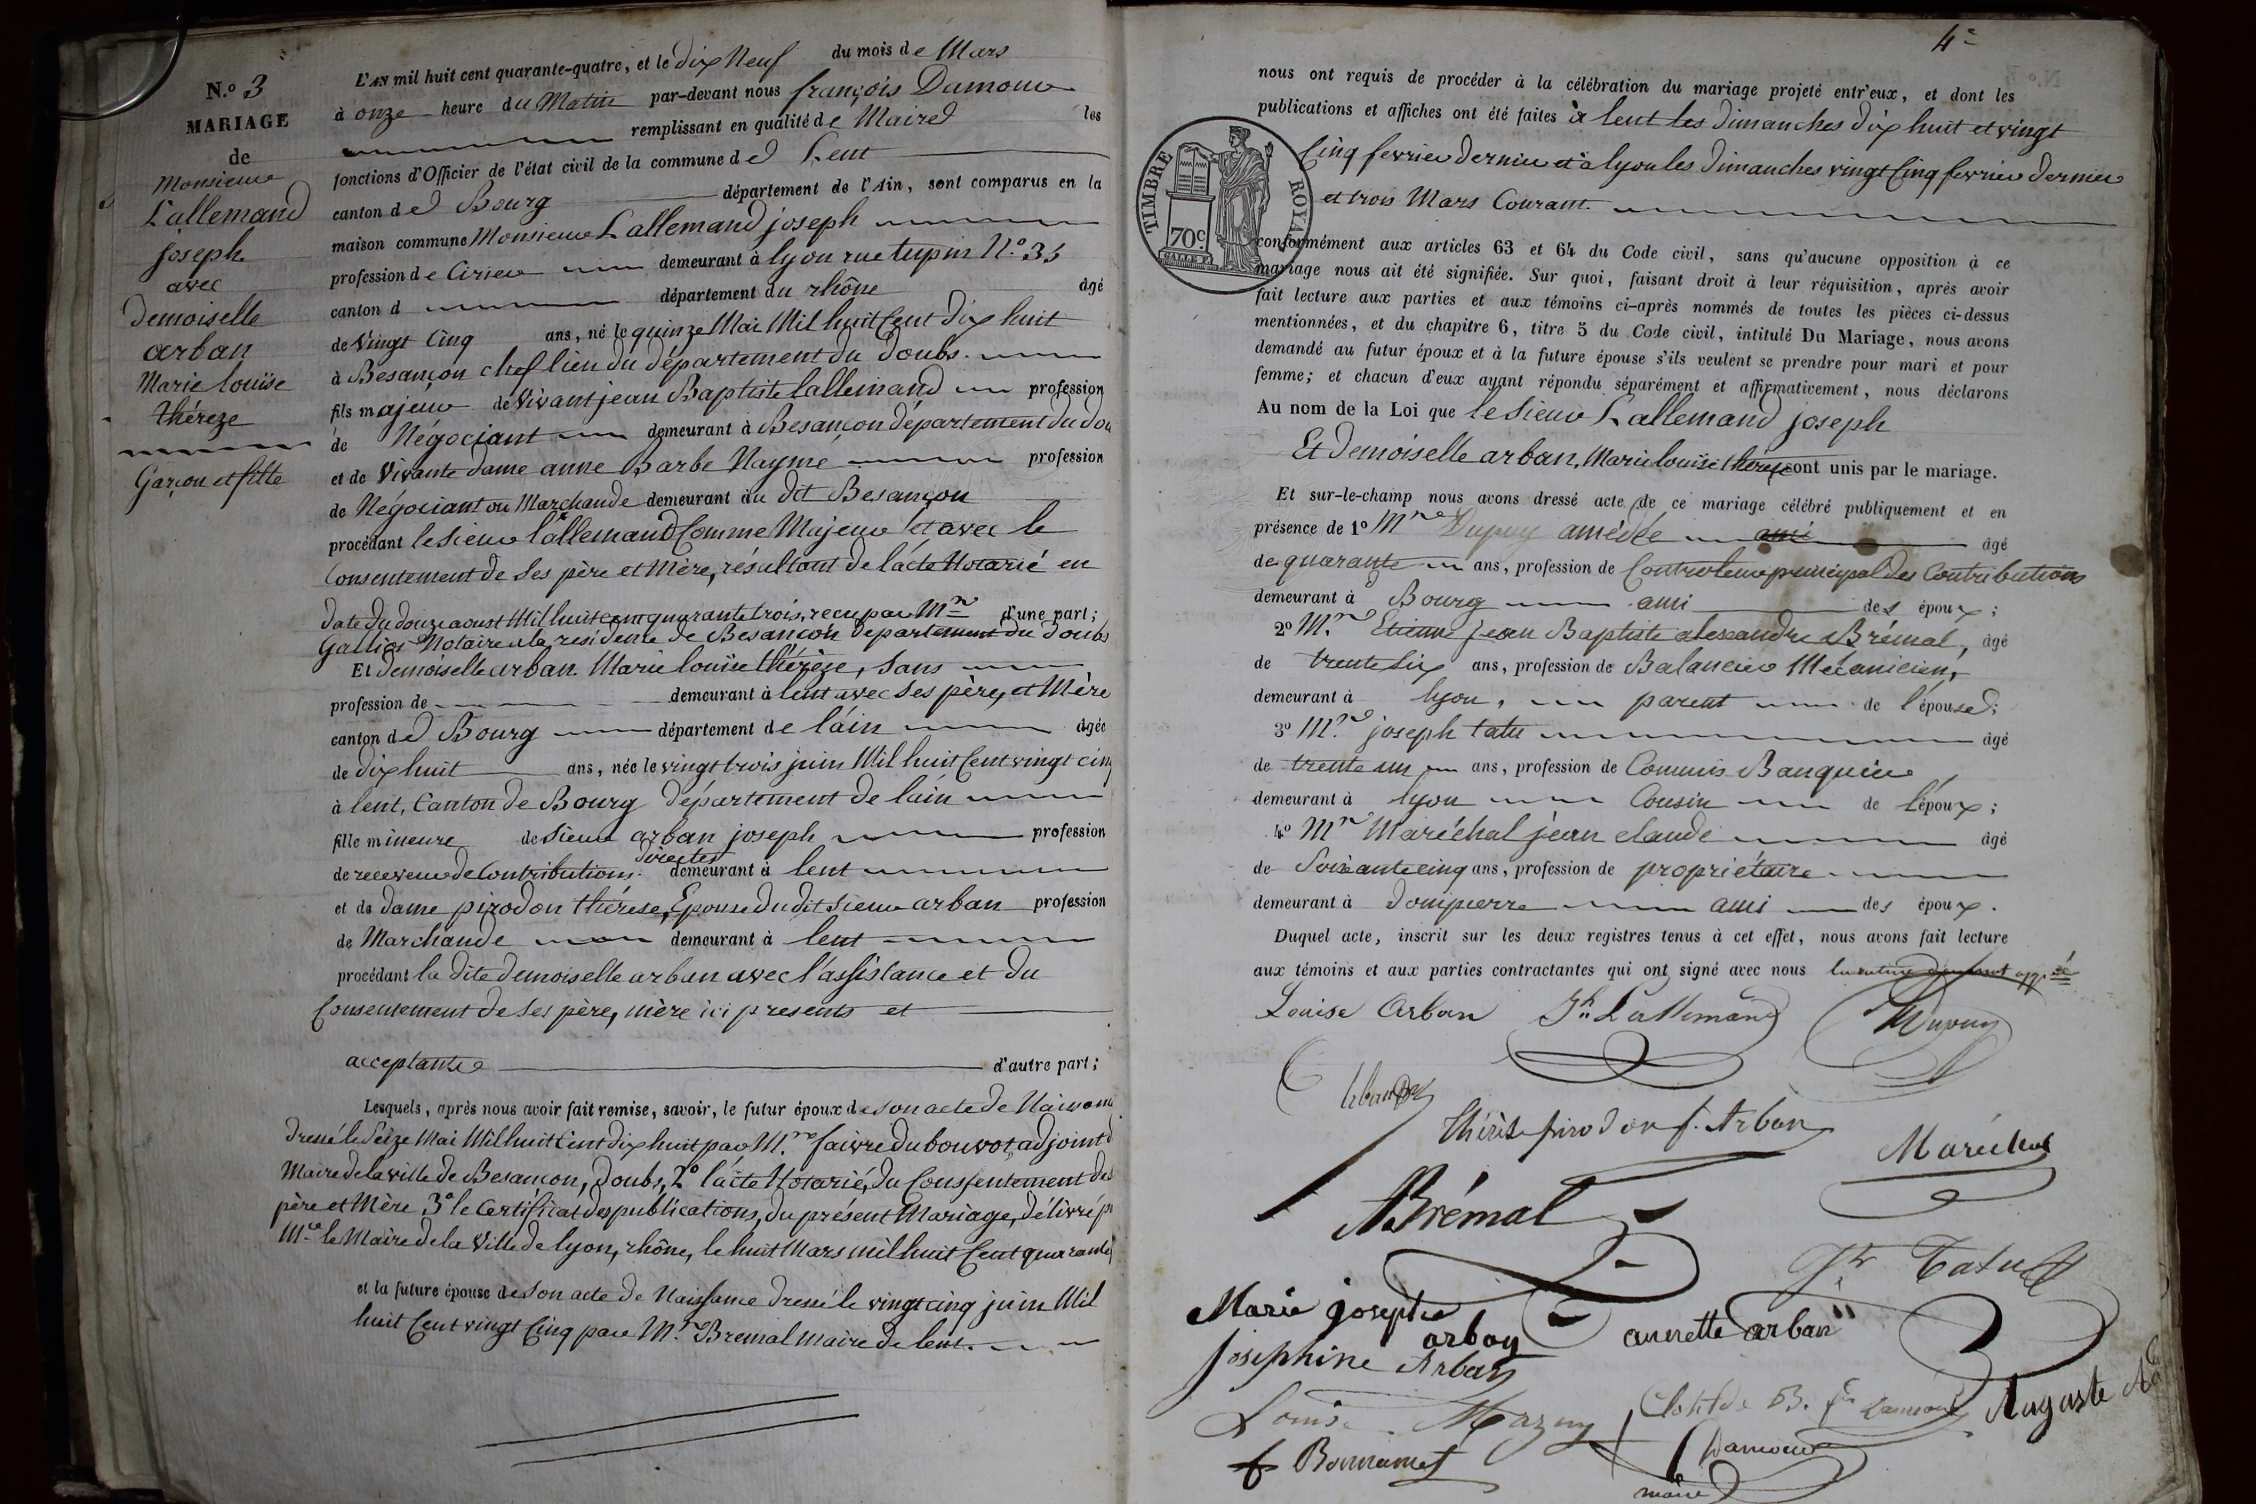 N.o 3
MARIAGE
de
Monsieur
Lallemand
joseph
avec
demoiselle
arban
Marie louise
thérèze
Garçon et fille
L'AN mil huit cent quarante-quatre, et le dix Neuf du mois de Mars
à onze heure du Matin par-devant nous françois Damour
remplissant en qualité de Maire les
fonctions d'Officier de l'état civil de la commune de Lent
canton de Bourg département de l'Ain, sont comparus en la
maison commune Monsieur Lallemand joseph
profession de Cirier demeurant à lyon rue tupin N.o 35
canton d département du rhône âgé
de Vingt Cinq ans, né le quinze Mai Mil huit Cent dix huit
à Besançon chef lieu du département du Doubs.
fils majeur de Vivant jean Baptiste lallemand profession
de Négociant demeurant à Besançon département du dou
et de Vivante dame anne Barbe Nayme profession
de Négociant ou Marchande demeurant au dit Besançon
procédant le sieur lallemand Comme Majeur et avec le
Consentement de ses père et Mère, résultant de l'acte Notarié en
date du douze aoust Mil huit cent quarante trois, reçu par Mre d'une part;
Notaire à la residence de Besançon departement du Doubs
Et demoiselle arban Marie louise thérèze, sans
profession de demeurant à lent avec ses père, et Mère
canton de Bourg département de l'ain âgée
de dix huit ans, née le vingt trois juin Mil huit Cent vingt cinq
à lent, Canton de Bourg département de l'ain
fille mineure de sieur arban joseph profession
directes
de receveur de Contributions demeurant à lent
et de dame pirodon thérése, Epouse du dit sieur arban profession
de Marchande demeurant à lent
procédant la dite demoiselle arban avec l'assistance et du
Consentement de ses père, mère ici presents et
acceptants d'autre part;
Lesquels, après nous avoir fait remise, savoir, le futur époux de son acte de Naissance
dressé le Seize Mai Mil huit Cent dix huit par M.re faivre du bouvot, adjoint
Maire de la ville de Besançon, Doubs, 2o l'acte Notarié, du Consentement des
père et Mère 3o le Certificat des publications, du présent Mariage, délivré p
Mr le Maire de la Ville de lyon, rhône, le huit Mars mil huit Cent quarante
et la future épouse de son acte de Naissance dressé le vingt cinq juin Mil
huit Cent vingt Cinq par Mr. Bremal Maire de lent.
4e
nous ont requis de procéder à la célébration du mariage projeté entr'eux, et dont les
publications et affiches ont été faites à lent les dimanches dix huit et vingt
Cinq fevrier dernier et à lyon les dimanches vingt Cinq fevrier dernier
et trois Mars Courant.
TIMBRE ROYAL
70c.
conformément aux articles 63 et 64 du Code civil, sans qu'aucune opposition à ce
mariage nous ait été signifiée. Sur quoi, faisant droit à leur réquisition, après avoir
fait lecture aux parties et aux témoins ci-après nommés de toutes les pièces ci-dessus
mentionnées, et du chapitre 6, titre 5 du Code civil, intitulé Du Mariage, nous avons
demandé au futur époux et à la future épouse s'ils veulent se prendre pour mari et pour
femme; et chacun d'eux ayant répondu séparément et affirmativement, nous déclarons
Au nom de la Loi que le sieur Lallemand joseph
Et demoiselle arban, Marie louise thérèze sont unis par le mariage.
Et sur-le-champ nous avons dressé acte de ce mariage célébré publiquement et en
présence de 1o Mre Dupuy amédée ami âgé
de quarante ans, profession de Controleur principal des Contributions
demeurant à Bourg ami des époux;
2o M.re Etienne jean Baptiste alexandre Brémal, âgé
de trente Six ans, profession de Balancier Mecanicien,
demeurant à lyon, parent de l'épouse;
3o M.re joseph tatu âgé
de trente un ans, profession de Commis Banquier
demeurant à lyon Cousin de l'époux;
4o Mre Maréchal jean claude âgé
de Soixante cinq ans, profession de propriétaire
demeurant à dompierre ami des époux.
Duquel acte, inscrit sur les deux registres tenus à cet effet, nous avons fait lecture
aux témoins et aux parties contractantes qui ont signé avec nous
Louise Arban Jh Lallemand Dupuy
Thérèse pirodon f. Arban
Maréchal
ABrémal
Jh Tatu
Marie josephe
arban
annette arban
Josephine Arban
Louise Mazuy
Clotilde B. fe Damour
Auguste
f Bonnamet
Damour
maire